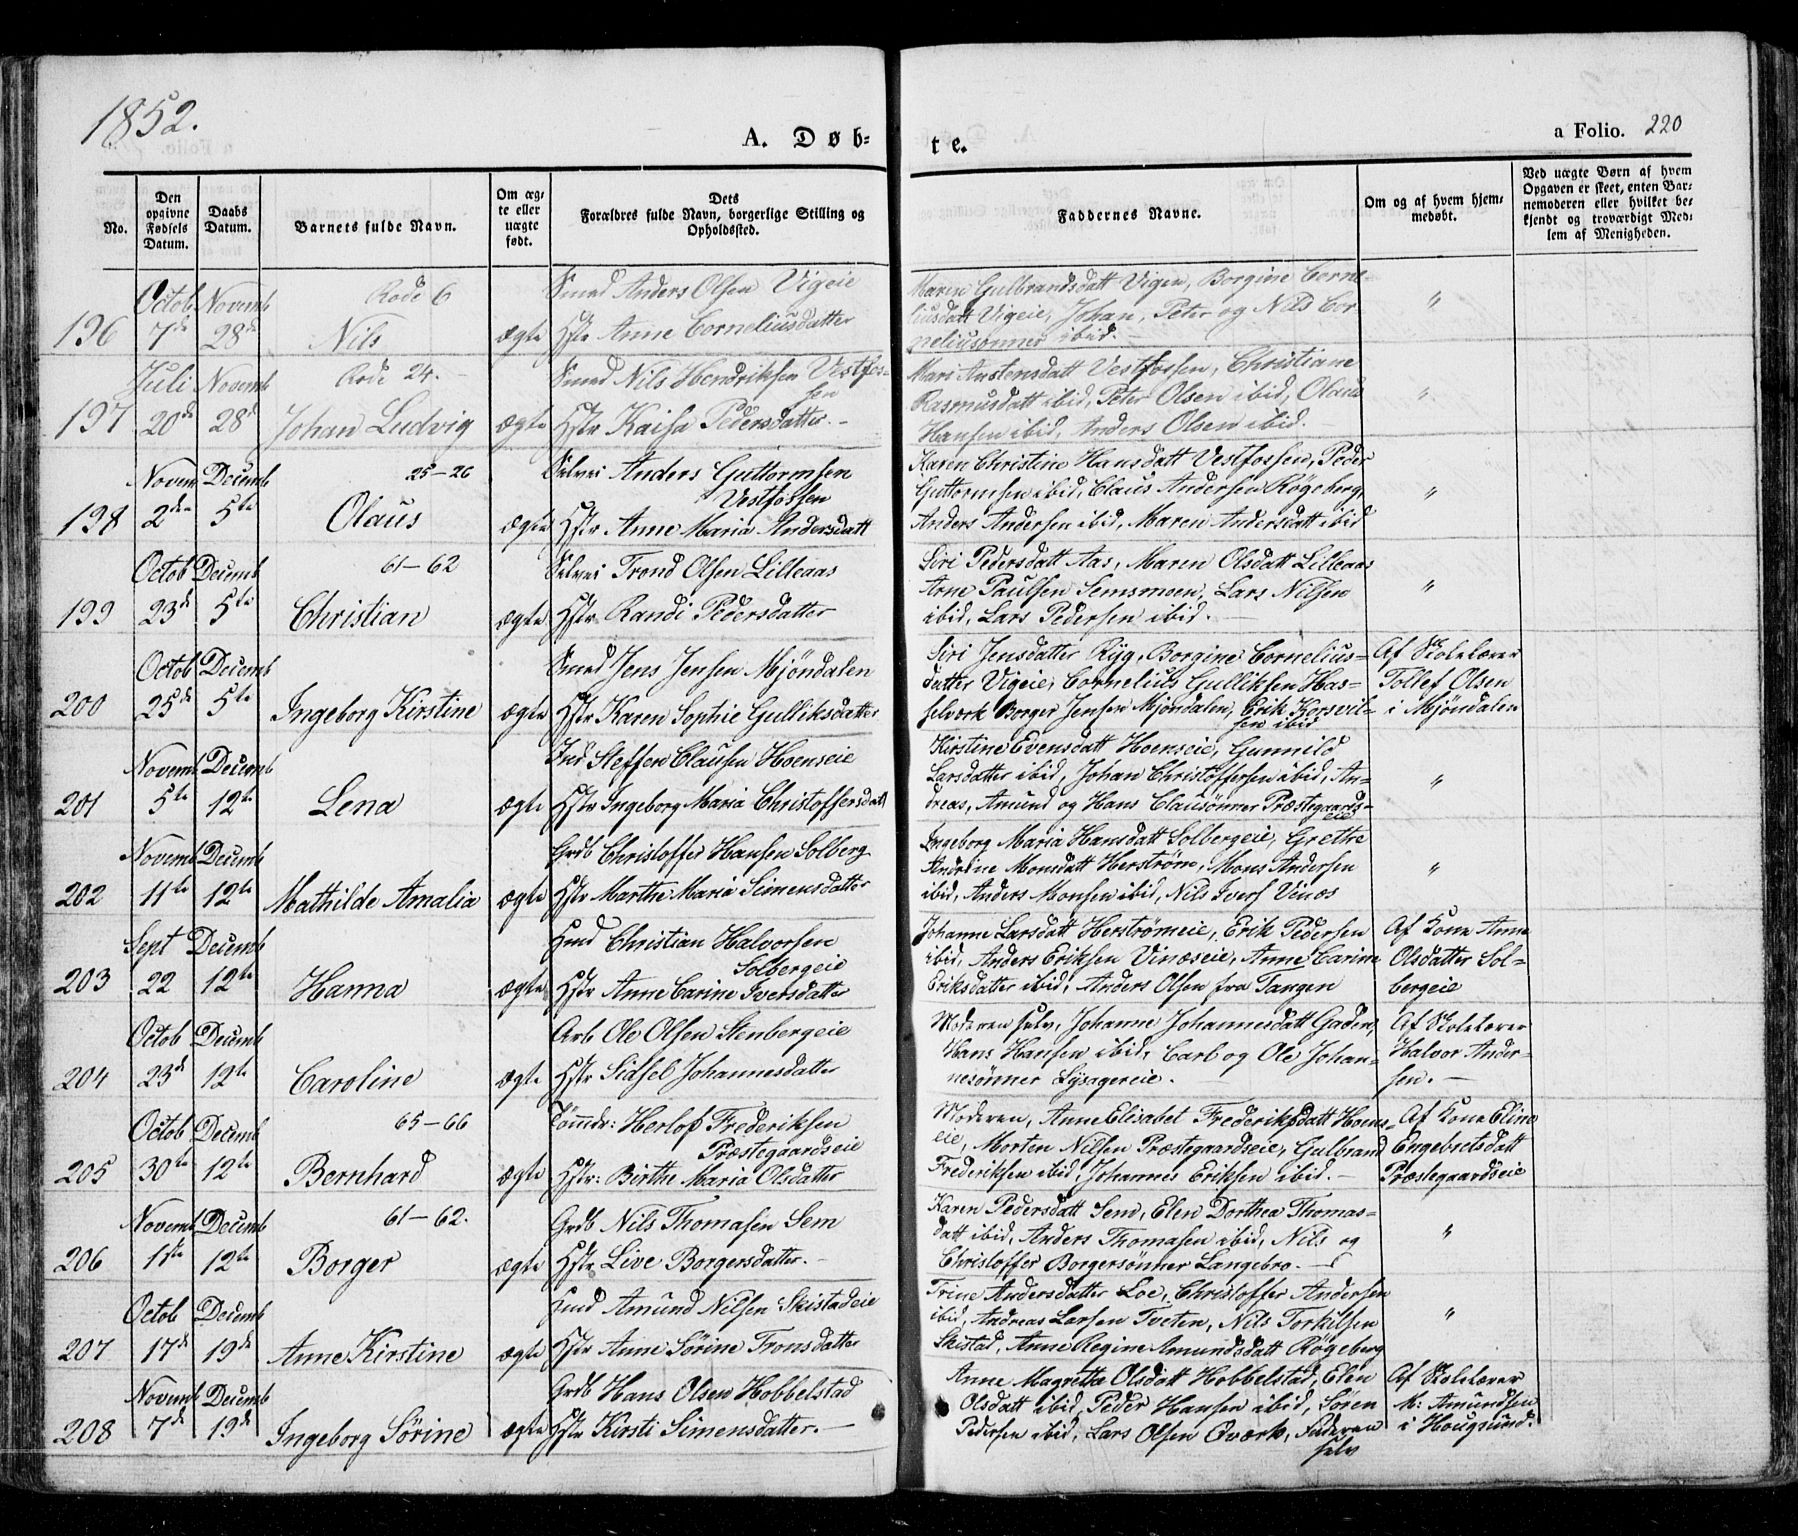 1852.
A. Døb-
te.
a Folio. 220
No.
Den
opgivne
Fødsels
Datum.
Daabs
Datum.
Barnets fulde Navn.
Om æg-
te eller
uægte
født.
Dets
Forældres fulde Navn, borgerlige Stilling og
Opholdssted.
Faddernes Navne.
Om og af hvem hjem-
medøbt.
Ved uægte Børn af hvem
Opgaven er skeet, enten Bar-
nemoderen eller hvilket be-
kjendt og troværdigt Med-
lem af Menigheden.
Octob Novemb Rode 6 Smed Anders Olsen Vigeie
196 7de 28de Nils ægte Hstr Anne Corneliusdatter
Maren Gulbrandsdatt Vigen, Borgine Corne-
liusdatt Vigeie, Johan, Peter og Nils Cor-
neliusønner ibid. "
Juli Novemb Rode 24. Smed Nils Hendriksen Vestfos-
sen
197 20de 28de Johan Ludvig ægte Hstr Kaisa Pedersdatter.
Mari Austensdatt Vestfossen, Christiane
Rasmusdatt ibid, Peter Olsen ibid, Olaus
Hansen ibid, Anders Olsen ibid. "
Novem Decemb 25-26 Selvei Anders Guttormsen
Vestfossen
198 2den 5te Olaus ægte Hstr Anne Maria Andersdatt
Karen Christine Hansdatt Vestfossen, Peder
Guttormsen ibid, Claus Andersen Røgeberg,
Anders Andersen ibid, Maren Andersdatt ibid "
Octob Decemb 61-62 Selvei Trond Olsen Lilleaas
199 23de 5te Christian ægte Hstr Randi Pedersdatter
Siri Pedersdatt Aas, Maren Olsdatt Lilleaas
Arne Paulsen Semsmoen, Lars Nilsen
ibid, Lars Pedersen ibid. "
Octob Decemb Smed Jens Jensen Mjöndalen
200 25de 5te Ingeborg Kirstine ægte Hstr Karen Sophie Gulliksdatter
Siri Jensdatter Ryg, Borgine Cornelius-
datter Vigeie, Cornelius Gulliksen Has-
selverk Borger Jensen Mjöndalen, Erik Korsvil-
sen ibid
Af Skolelærer
Tollef Olsen
i Mjöndalen
Novemb Decemb Ind Steffen Clausen Hoenseie
201 5te 12te Lena ægte Hstr Ingeborg Maria Christoffersdatt
Kirstine Evensdatt Hoenseie, Gunnild
Larsdatter ibid, Johan Christoffersen ibid, An-
dreas, Amund og Hans Clausönner Præstegaards-
eie "
Novemb Decemb Grdb Christoffer Hansen Solberg
202 11te 12te Mathilde Amalia ægte Hstr Marthe Maria Simensdatter
Ingeborg Maria Hansdatt Solbergeie, Grethe
Andrine Monsdatt Herström, Mons Andersen
ibid, Anders Monsen ibid, Nils Ivers Vinæs "
Sept Decemb Hmd Christian Halvorsen
Solbergeie
203 22 12te Hanna ægte Hstr Anne Carine Iversdatter
Johanne Larsdatt Herströmeie, Erik Pedersen
ibid, Anders Eriksen Vinæseie, Anne Carine
Eriksdatter ibid, Anders Olsen fra Tangen
Af Kone Anne
Olsdatter Sol-
bergeie
Octob Decemb Arb Ole Olsen Stenbergeie
204 23de 12te Caroline ægte Hstr Sidsel Johannesdatter
Moderen selv, Johanne Johannesdatt Gaden,
Hans Hansen ibid, Carl og Ole Johan-
nesönner Lysagereie.
Af Skolelærer
Halvor Ander-
sen.
Octob Decemb 65-66 Tömdr: Herlof Frederiksen
Præstegaardseie
205 30te 12te Bernhard ægte Hstr: Birthe Maria Olsdatter
Moderen, Anne Elisabet Frederiksdatt Hoens-
eie, Morten Nilsen Præstegaardseie, Gulbrand
Frederiksen ibid, Johannes Eriksen ibid.
Af Kone Eline
Engebretsdatt
Præstegaardseie
Novemb Decemb 61-62. Grdb Nils Thomasen Sem
206 1ste 12te Borger ægte Hstr Live Borgersdatter.
Karen Pedersdatt Sem, Elen Dorthea Thomas-
datt ibid, Anders Thomasen ibid, Nils og
Christoffer Borgersönner Langebro. "
Octob Decemb Hmd Amund Nilsen Skistadeie
207 17de 19de Anne Kirstine ægte Hstr Anne Sörine Tronsdatter
Trine Andersdatter Loe, Christoffer Andersen
ibid, Andreas Larsen Tveten, Nils Torkilsen
Skistad, Anne Regine Amundsdatt Røgeberg "
Novemb Decemb Grdb Hans Olsen Hobbelstad
208 7de 19de Ingeborg Sörine ægte Hstr Kirsti Simensdatter.
Anne Magrethe Olsdatt Hobbelstad, Elen
Olsdatt ibid, Peder Hansen ibid, Sören
Pedersen ibid, Lars Olsen Qværk, Faderen
selv
Af Skolelærer
K: Amundsen
i Hougsund.